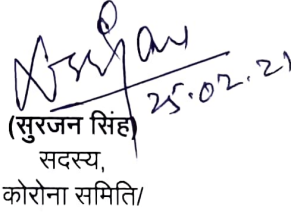 25.02.21
(सुरजन सिंह)
सदस्य,
कोरोना समिति/